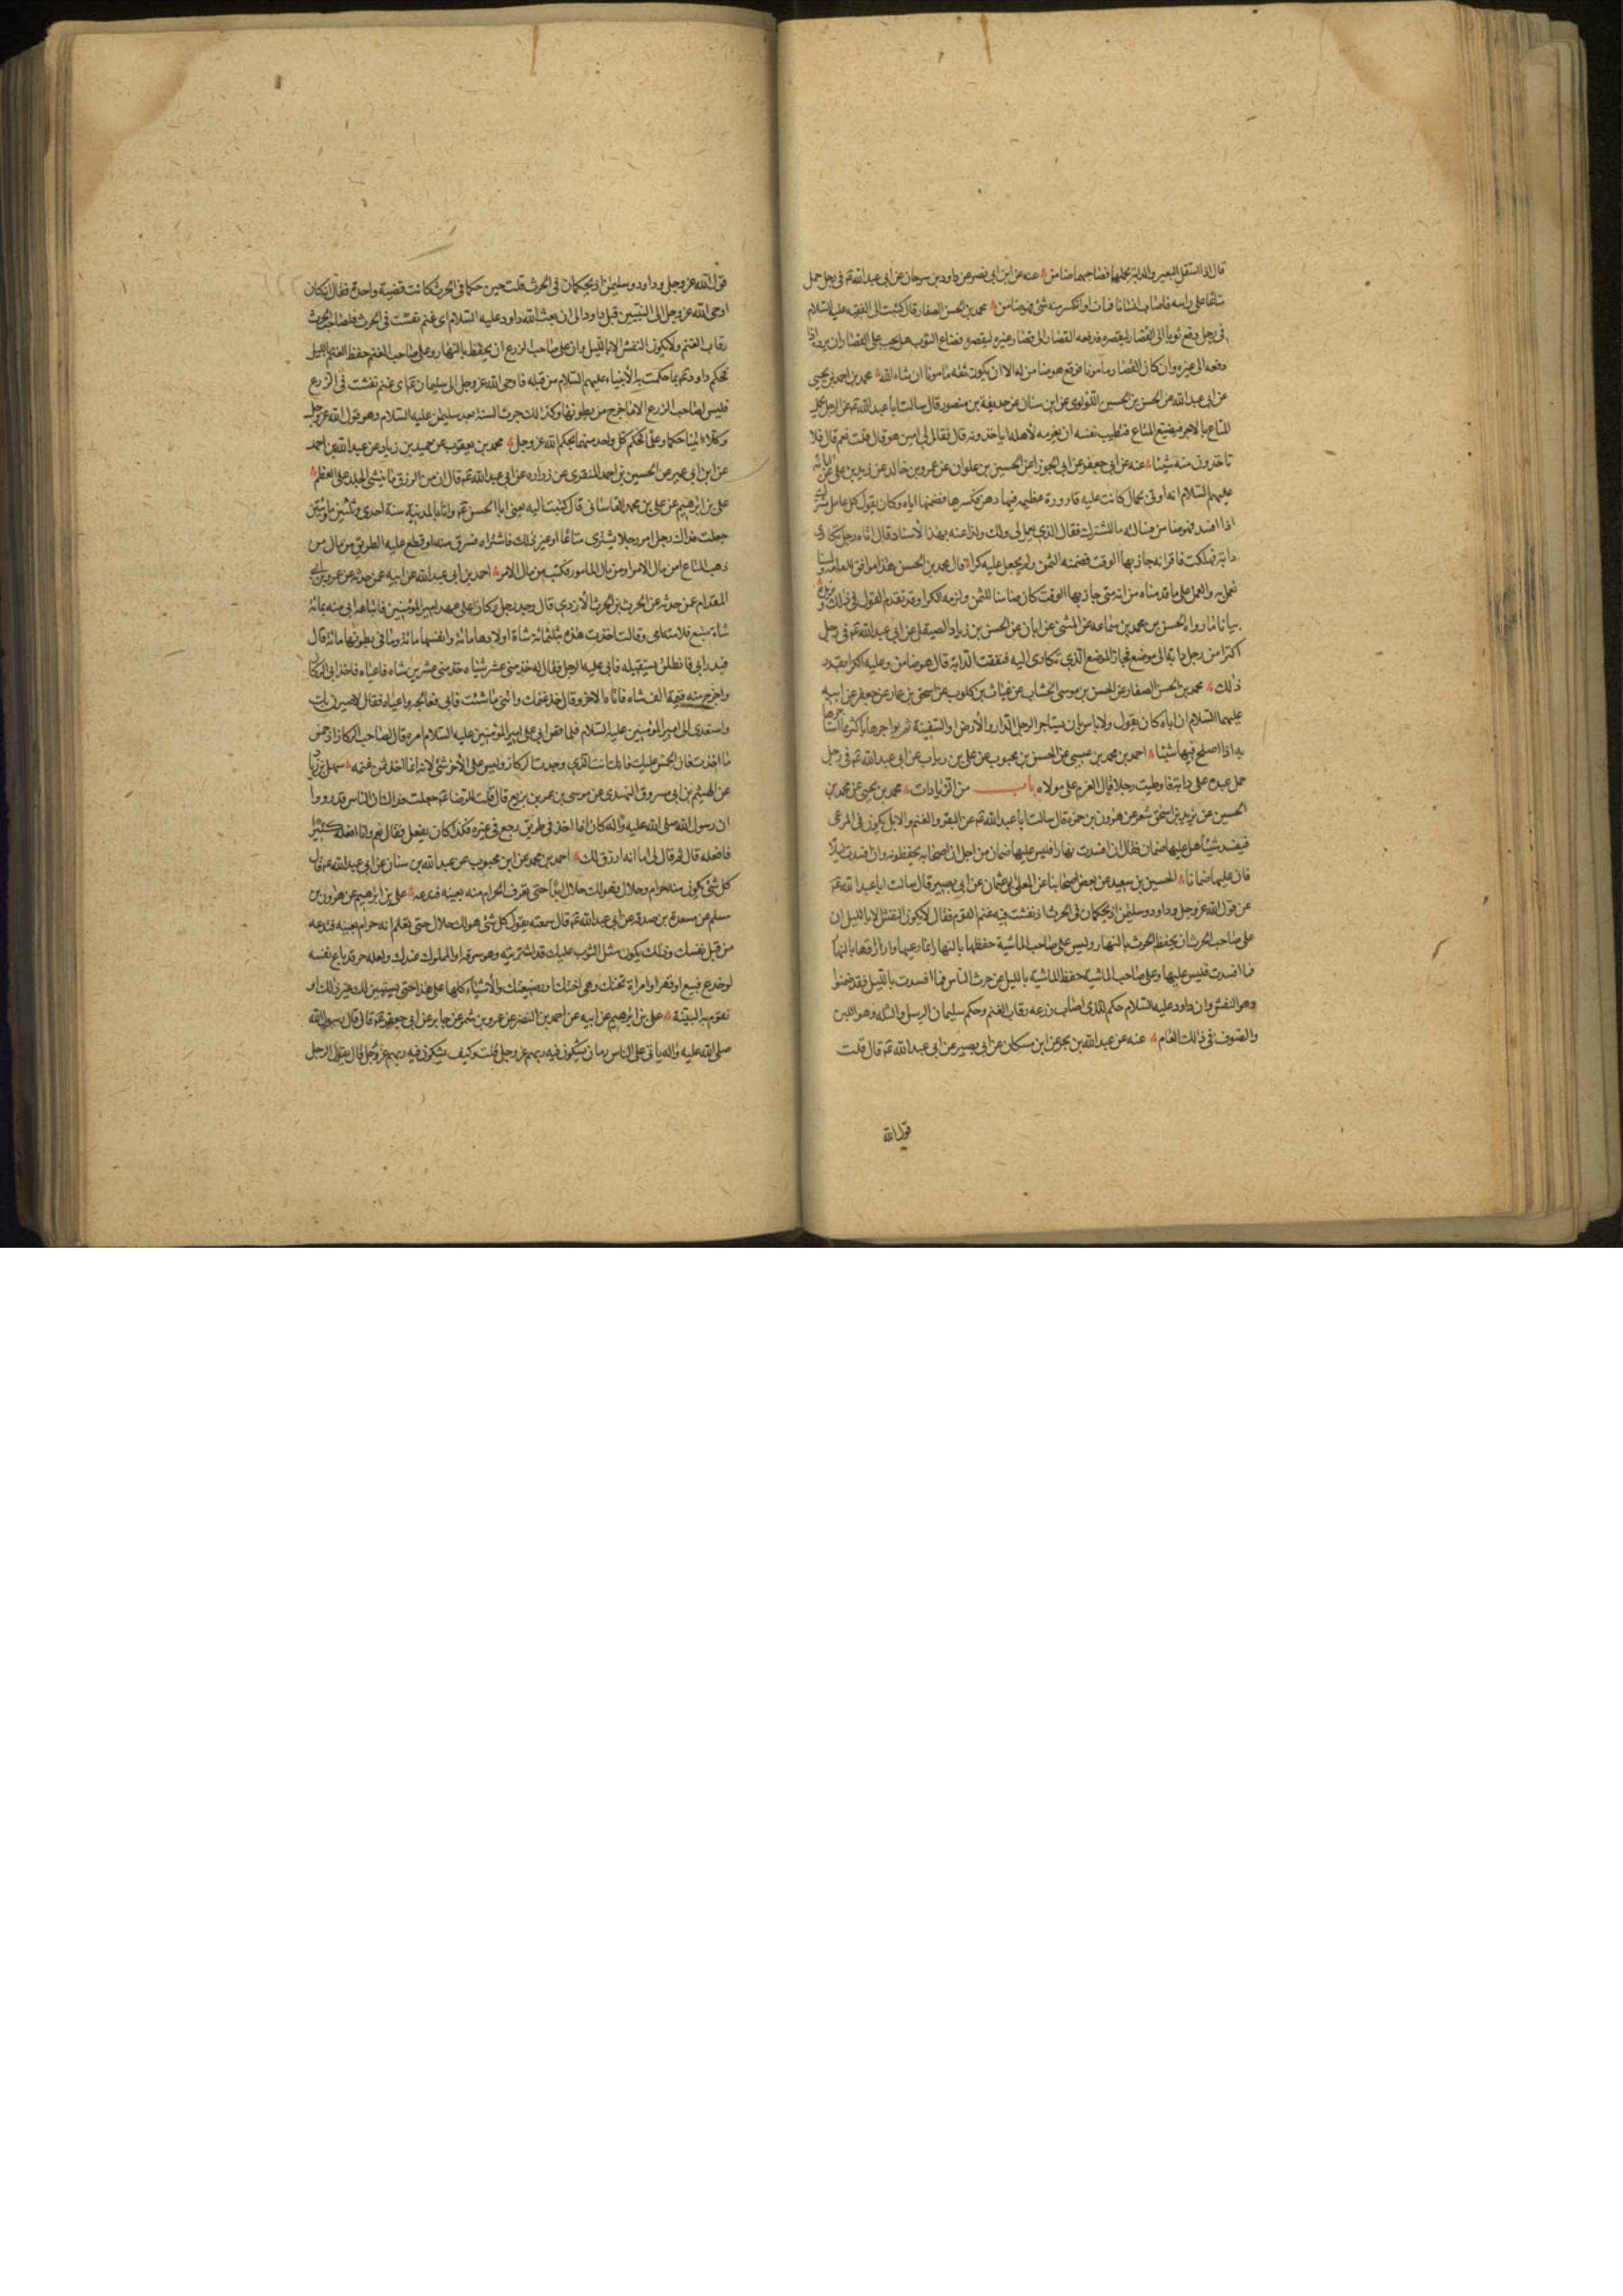 قال اذا استقل البعير والدابة بحملهما فصاحبهما ضامن عنه عن ابن ابي نصر عن داود بن سرحان عن ابي عبد الله عم في رجل حمل
متاعا على راسه فاصاب انسانا فمات او انكسر منه شئ فهو ضامن محمد بن الحسن الصفار قال كتبت الى الفقيه عليه السلام
في رجل دفع ثوبا الى القصار ليقصره فدفعه القصار الى قصار غيره ليقصره فضاع الثوب هل يجب على القصار ان يرده اذا
دفعه الى غيره وان كان القصار مأمونا فوقع هو ضامن له الا ان يكون ثقة مامونا ان شاء الله محمد بن احمد بن يحيى
عن ابي عبد الله عن الحسن بن الحسين اللؤلوي عن ابن سنان عن حذيفة بن منصور قال سالت ابا عبد الله عم عن الرجل يحمل
المتاع بالاجر فيضيع المتاع فتطيب نفسه ان يغرمه لأهله اياخذونه قال فقال لي امين هو قال قلت نعم قال فلا
تاخذون منه شيئا عنه عن ابي جعفر عن ابي الجوزا عن الحسين بن علوان عن عمرو بن خالد عن زيد بن علي عن ابائه
عليهم السلام انه اوتي بحمال كانت عليه قارورة عظيمه فيها دهن فكسرها فضمنها اياه وكان يقول كل عامل مشترك
اذا افسد فهو ضامن فسالته ما المشترك فقال الذي يعمل لي ولك ولذا عنه بهذا الأسناد قال اتاه رجل تكارى
دابة فهلكت فاقر انه جاز بها الوقت فضمنه الثمن ولم يجعل عليه كرا قال محمد بن الحسن هذا موافق للعامة ولسنا
نعمل به والعمل على ما قدمناه من انه متى جاز بها الوقت كان ضامنا للثمن ولزمه الكرا وقد تقدم القول في ذلك ويزيده
بيانا ما رواه الحسن بن محمد بن سماعه عن المثنى عن ابان عن الحسن بن زياد الصيقل عن ابي عبد الله عم في رجل
اكترا من رجل دابة الى موضع فجاز الموضع الذي تكارى اليه فنفقت الدابة قال هو ضامن وعليه الكرا بقدر
ذلك محمد بن الحسن الصفار عن الحسن بن موسى الخشاب عن غياث بن كلوب عن اسحق بن عمار عن جعفر عن ابيه
عليهما السلام ان اباه كان يقول ولا باس بان يستاجر الرجل الدار والأرض او السفينة ثم يواجرها باكثر مما استاجرها
به اذا اصلح فيها شيئا احمد بن محمد بن عيسى عن الحسن بن محبوب عن علي بن رياب عن ابي عبد الله عم في رجل
حمل عبده على دابة فاوطيت رجلا قال الغرم على مولاه باب من الزيادات محمد بن يحيى عن محمد بن
الحسين عن يزيد بن اسحق شعر عن هرون بن حمزه قال سالت ابا عبد الله عم عن البقر والغنم والابل يكون في المرعى
فيفسد شيئا هل عليها ضمان فقال ان افسدت نهارا فليس عليها ضمان من اجل ان اصحابه يحفظونه وان افسدت ليلا
فان عليها ضمانا الحسين بن سعيد عن بعض اصحابنا عن المعلى ابي عثمان عن ابي بصير قال سالت ابا عبد الله عم
عن قول الله عز وجل وداود وسليمن اذ يحكمان في الحرث اذ نفشت فيه غنم القوم فقال لا يكون النفش الا بالليل ان
على صاحب الحرث ان يحفظ الحرث بالنهار وليس على صاحب الماشية حفظها بالنهار انما رعيها وارزاقها بالنهار
فما افسدت فليس عليها وعلى صاحب الماشية حفظ الماشية بالليل عن حرث الناس فما افسدت بالليل فقد ضمنوا
وهو النفش وان داود عليه السلام حكم للذي اصاب زرعه رقاب الغنم وحكم سليمان الرسل والثلة وهو اللبن
والصوف في ذالك العام عنه عن عبد الله بن بحر عن ابن مسكان عن ابي بصير عن ابي عبد الله عم قال قلت
قول الله
قول الله عز وجل وداود وسليمن اذ يحكمان في الحرث قلت حين حكما في الحرث كانت قضية واحدة فقال انه كان
اوحى الله عز وجل الى النبيين قبل داود الى ان بعث الله داود عليه السلام اي غنم نفشت في الحرث فلصاحب الحرث
رقاب الغنم ولا يكون النفش الا بالليل وان على صاحب الزرع ان يحفظه بالنهار وعلى صاحب الغنم حفظ الغنم بالليل
فحكم داود عم بما حكمت به الأنبياء عليهم السلام من قبله فاوحى الله عز وجل الى سليمان عم اي غنم نفشت في الزرع
فليس لصاحب الزرع الا ما خرج من بطونها وكذالك جرت السنة بعد سليمن عليه السلام وهو قول الله عز وجل
وكلا اتينا حكما وعلما فحكم كل واحد منهما بحكم الله عز وجل محمد بن يعقوب عن حميد بن زياد عن عبد الله بن احمد
عن ابن ابي عمير عن الحسين بن احمد المنقري عن زراره عن ابي عبد الله عم قال ان من الرزق ما ييبس الجلد على العظم
علي بن ابرهيم عن علي بن محمد القاساني قال كتبت اليه يعني ابا الحسن عم وانا بالمدينة سنة احدى وثلثين ومائتين
جعلت فداك رجل امر رجلا يشتري متاعا او غير ذلك فاشتراه فسرق منه او قطع عليه الطريق من مال من
ذهب المتاع امن مال الامر او من مال المامور فكتب من مال الامر احمد بن ابي عبد الله عن ابيه عمن حدثه عن عمرو بن ابي
المقدام عمن حدثه عن الحرث بن الحرث الأزدي قال وجد رجل ركازا على عهد امير المؤمنين فابتاعه ابي منه بمائة
شاة متبع فلامته امي وقالت اخذت هذه بثلثمائة شاة اولادها مائة وانفسها مائة وما في بطونها مائة قال
فندم ابي فانطلق يستقيله فابى عليه الرجل فقال له خذ مني عشر شياه خذ مني عشرين شاه فاعياه فاخذ ابي الركاز
واخرج منه قيمة الف شاه فاتاه الاخر وقال خذ غنمك واتني ما شئت فابى فعالجه واعياه فقال لاضرن بك
واستعدى الى امير المؤمنين عليه السلام فلما قص ابي على امير المؤمنين عليه السلام امره قال لصاحب الركاز اد خمس
ما اخذت فان الخمس عليك فانك انت الذي وجدت الركاز وليس على الأخر شئ لانه انما اخذ ثمن غنمه سهل بن زياد
عن الهيثم بن ابي مسروق النهدي عن موسى بن عمر بن بزيع قال قلت للرضا عم جعلت فداك ان الناس قد رووا
ان رسول الله صلى الله عليه واله كان اذا اخذ في طريق رجع في غيره فكذا كان يفعل فقال نعم وانا افعله كثيرا
فافعله قال ثم قال لي اما انه ارزق لك احمد بن محمد عن ابن محبوب عن عبد الله بن سنان عن ابي عبد الله عم قال
كل شئ يكون منه حرام وحلال فهو لك حلال ابدا حتى تعرف الحرام منه بعينه فتدعه علي بن ابرهيم عن هارون بن
مسلم عن مسعدة بن صدقه عن ابي عبد الله عم قال سمعته يقول كل شئ هو لك حلال حتى تعلم انه حرام بعينه فتدعه
من قبل نفسك وذلك يكون مثل الثوب عليك قد اشتريته وهو سرقة او المملوك عندك ولعله حر قد باع نفسه
او خدع فبيع او قهر او امراة تحتك وهي اختك او رضيعتك والأشياء كلها على هذا حتى يستبين لك غير ذلك او
تقوم به البينة علي بن ابرهيم عن ابيه عن احمد بن النضر عن عمرو بن شمر عن جابر عن ابي جعفر عم قال قال رسول الله
صلى الله عليه واله ياتي على الناس زمان يشكون فيه ربهم عز وجل قلت وكيف يشكون فيه ربهم عز وجل قال يقول الرجل